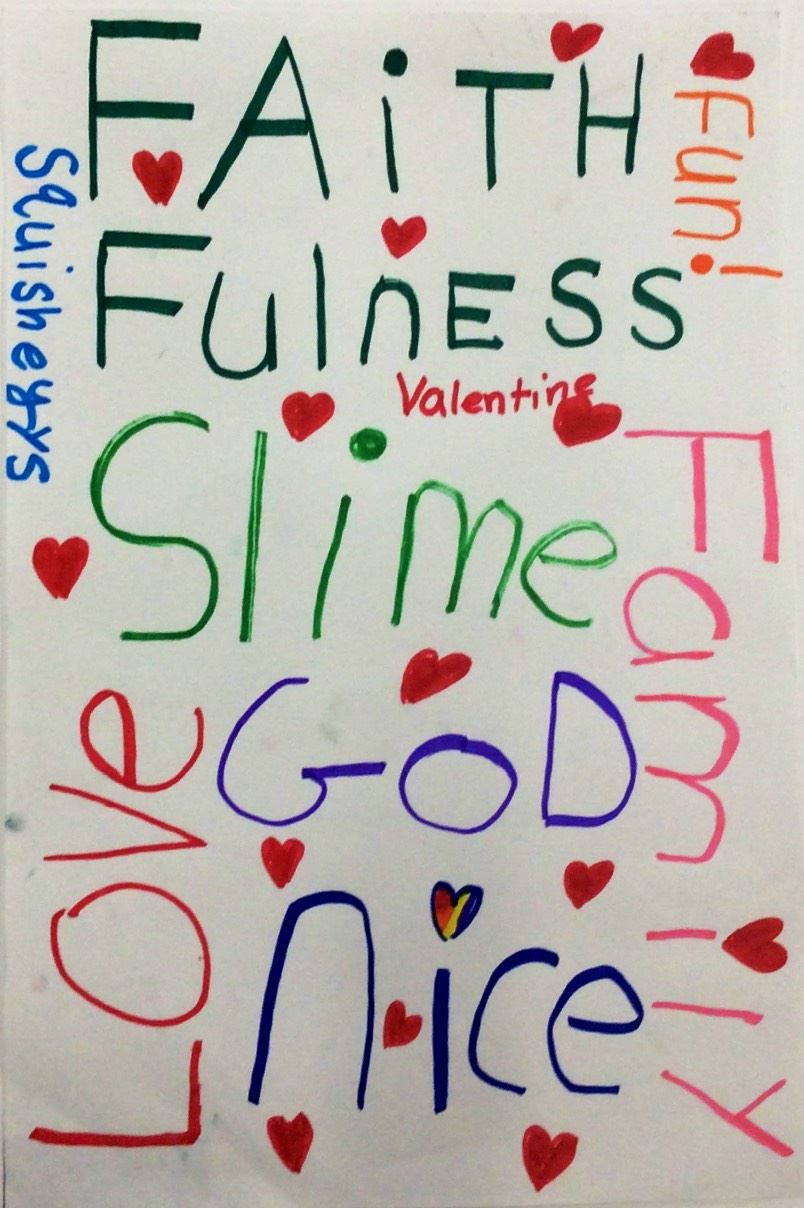 FAiTH
FulnESS
Fun!
Squisheyys
Valentine
Slime
Family
GoD
Love
nice